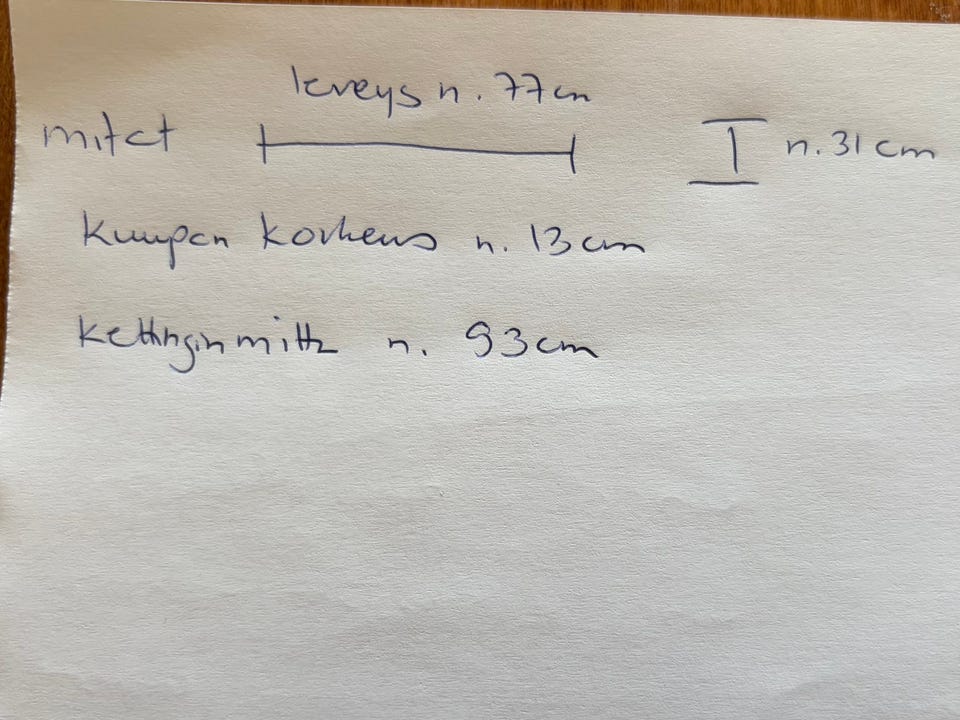 leveys n. 77cm
mitat n. 31 cm
kuupan korkeus n. 13 cm
kettingin mitta n. 93cm